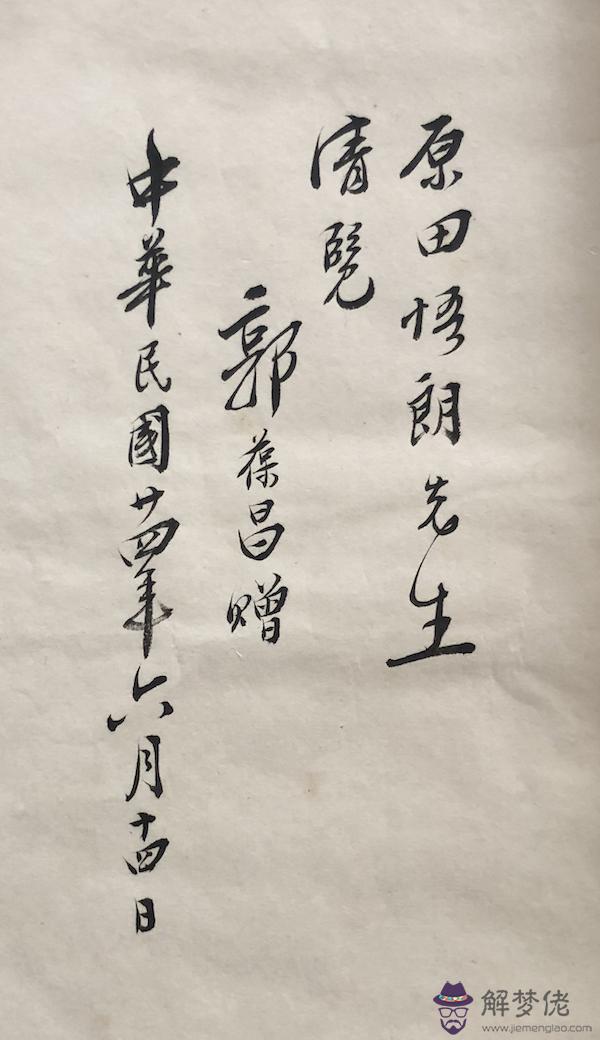 原田悟朗先生
清覽
郭葆昌贈
中華民國廿四年六月十四日
解梦佬
www.jiemenglao.com